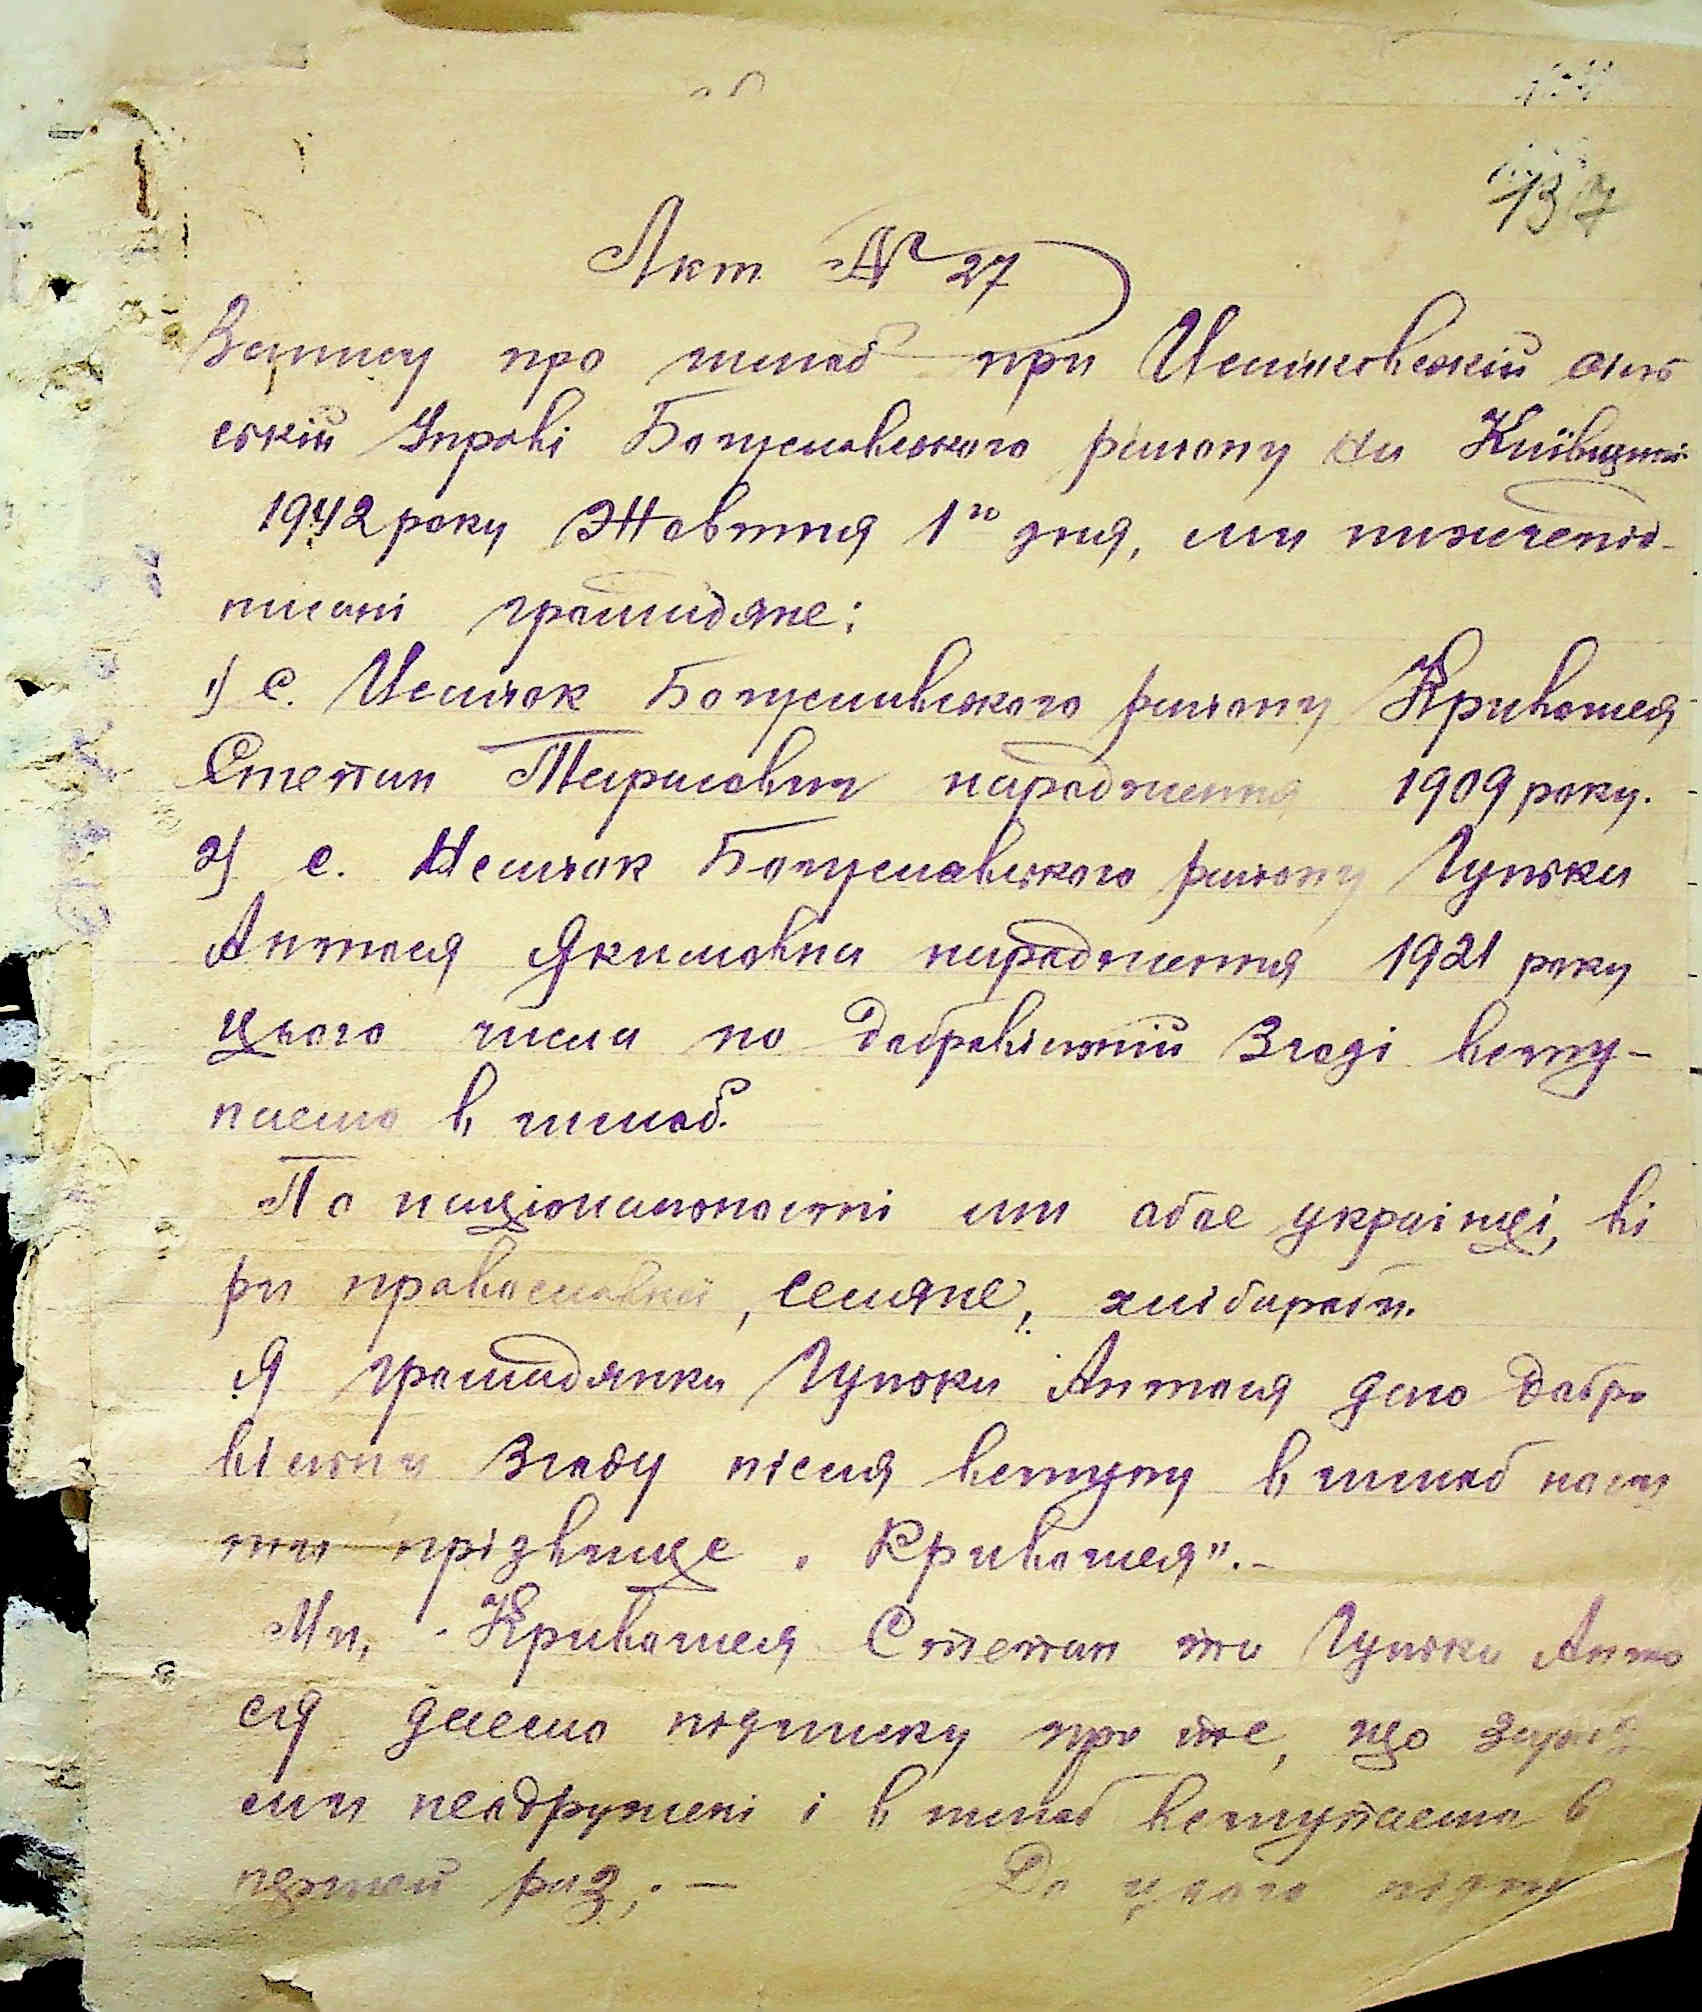 137
Акт № 27
Запису про шлюб при Исайковській сіль
ській Управі Богуславського району на Київщині
1942 року Жовтня 1го дня, ми нижчепід-
писані громадяне:
1) с. Исайок Богуславського району Кривошея
Степан Тарасович народження 1909 року.
2) с. Исайок Богуславського району Гунька
Антося Якимовна народження 1921 року
цього числа по добровільній Згоді всту-
паємо в шлюб.
По національності ми обоє українці, ві
ри православної, селяне, хлібороби.
Я громадянка Гунька Антося даю добро
вільну Згоду після вступу в шлюб носи
ти прізвище „Кривошея".-
Ми, Кривошея Степан та Гунька Анто
ся даємо підписку про те, що зараз
ми неодружені і в шлюб вступаємо в
перший раз. -  До цього підпи